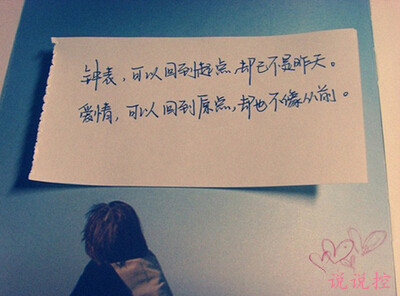 钟表，可以回到起点，却已不是昨天。
爱情，可以回到原点，却也不像从前。
说说控